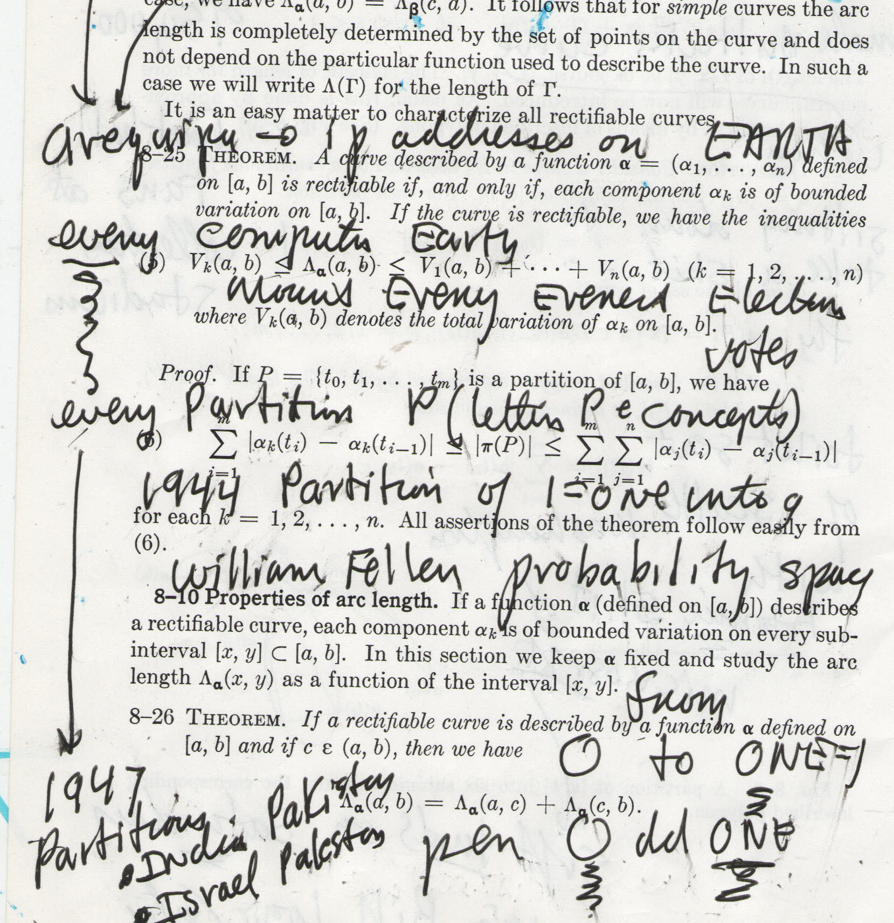 case, we have Λα(a, b) = Λβ(c, d). It follows that for simple curves the arc
length is completely determined by the set of points on the curve and does
not depend on the particular function used to describe the curve. In such a
case we will write Λ(Γ) for the length of Γ.
It is an easy matter to characterize all rectifiable curves.
ip addresses on EARTH
8–25 THEOREM. A curve described by a function α = (α₁, . . . , αₙ) defined
on [a, b] is rectifiable if, and only if, each component αₖ is of bounded
variation on [a, b]. If the curve is rectifiable, we have the inequalities
every Computer
(5) Vₖ(a, b) ≤ Λα(a, b) ≤ V₁(a, b) + · · · + Vₙ(a, b) (k = 1, 2, . . . , n)
Every
where Vₖ(a, b) denotes the total variation of αₖ on [a, b].
votes
Proof. If P = {t₀, t₁, . . . , tₘ} is a partition of [a, b], we have
every Partition P (letter P e concepts)
(6) ∑ᵢ₌₁ᵐ |αₖ(tᵢ) − αₖ(tᵢ₋₁)| ≤ |π(P)| ≤ ∑ᵢ₌₁ᵐ ∑ⱼ₌₁ⁿ |αⱼ(tᵢ) − αⱼ(tᵢ₋₁)|
1944 Partition of 1=one into 9
for each k = 1, 2, . . . , n. All assertions of the theorem follow easily from
(6).
William Feller probability space
8–10 Properties of arc length. If a function α (defined on [a, b]) describes
a rectifiable curve, each component αₖ is of bounded variation on every sub-
interval [x, y] ⊂ [a, b]. In this section we keep α fixed and study the arc
length Λα(x, y) as a function of the interval [x, y].
from
8–26 THEOREM. If a rectifiable curve is described by a function α defined on
[a, b] and if c ε (a, b), then we have
O to ONE=1
1947
Λα(a, b) = Λα(a, c) + Λα(c, b).
Partitions
• India Pakistan
pen O dd ONE
• Israel